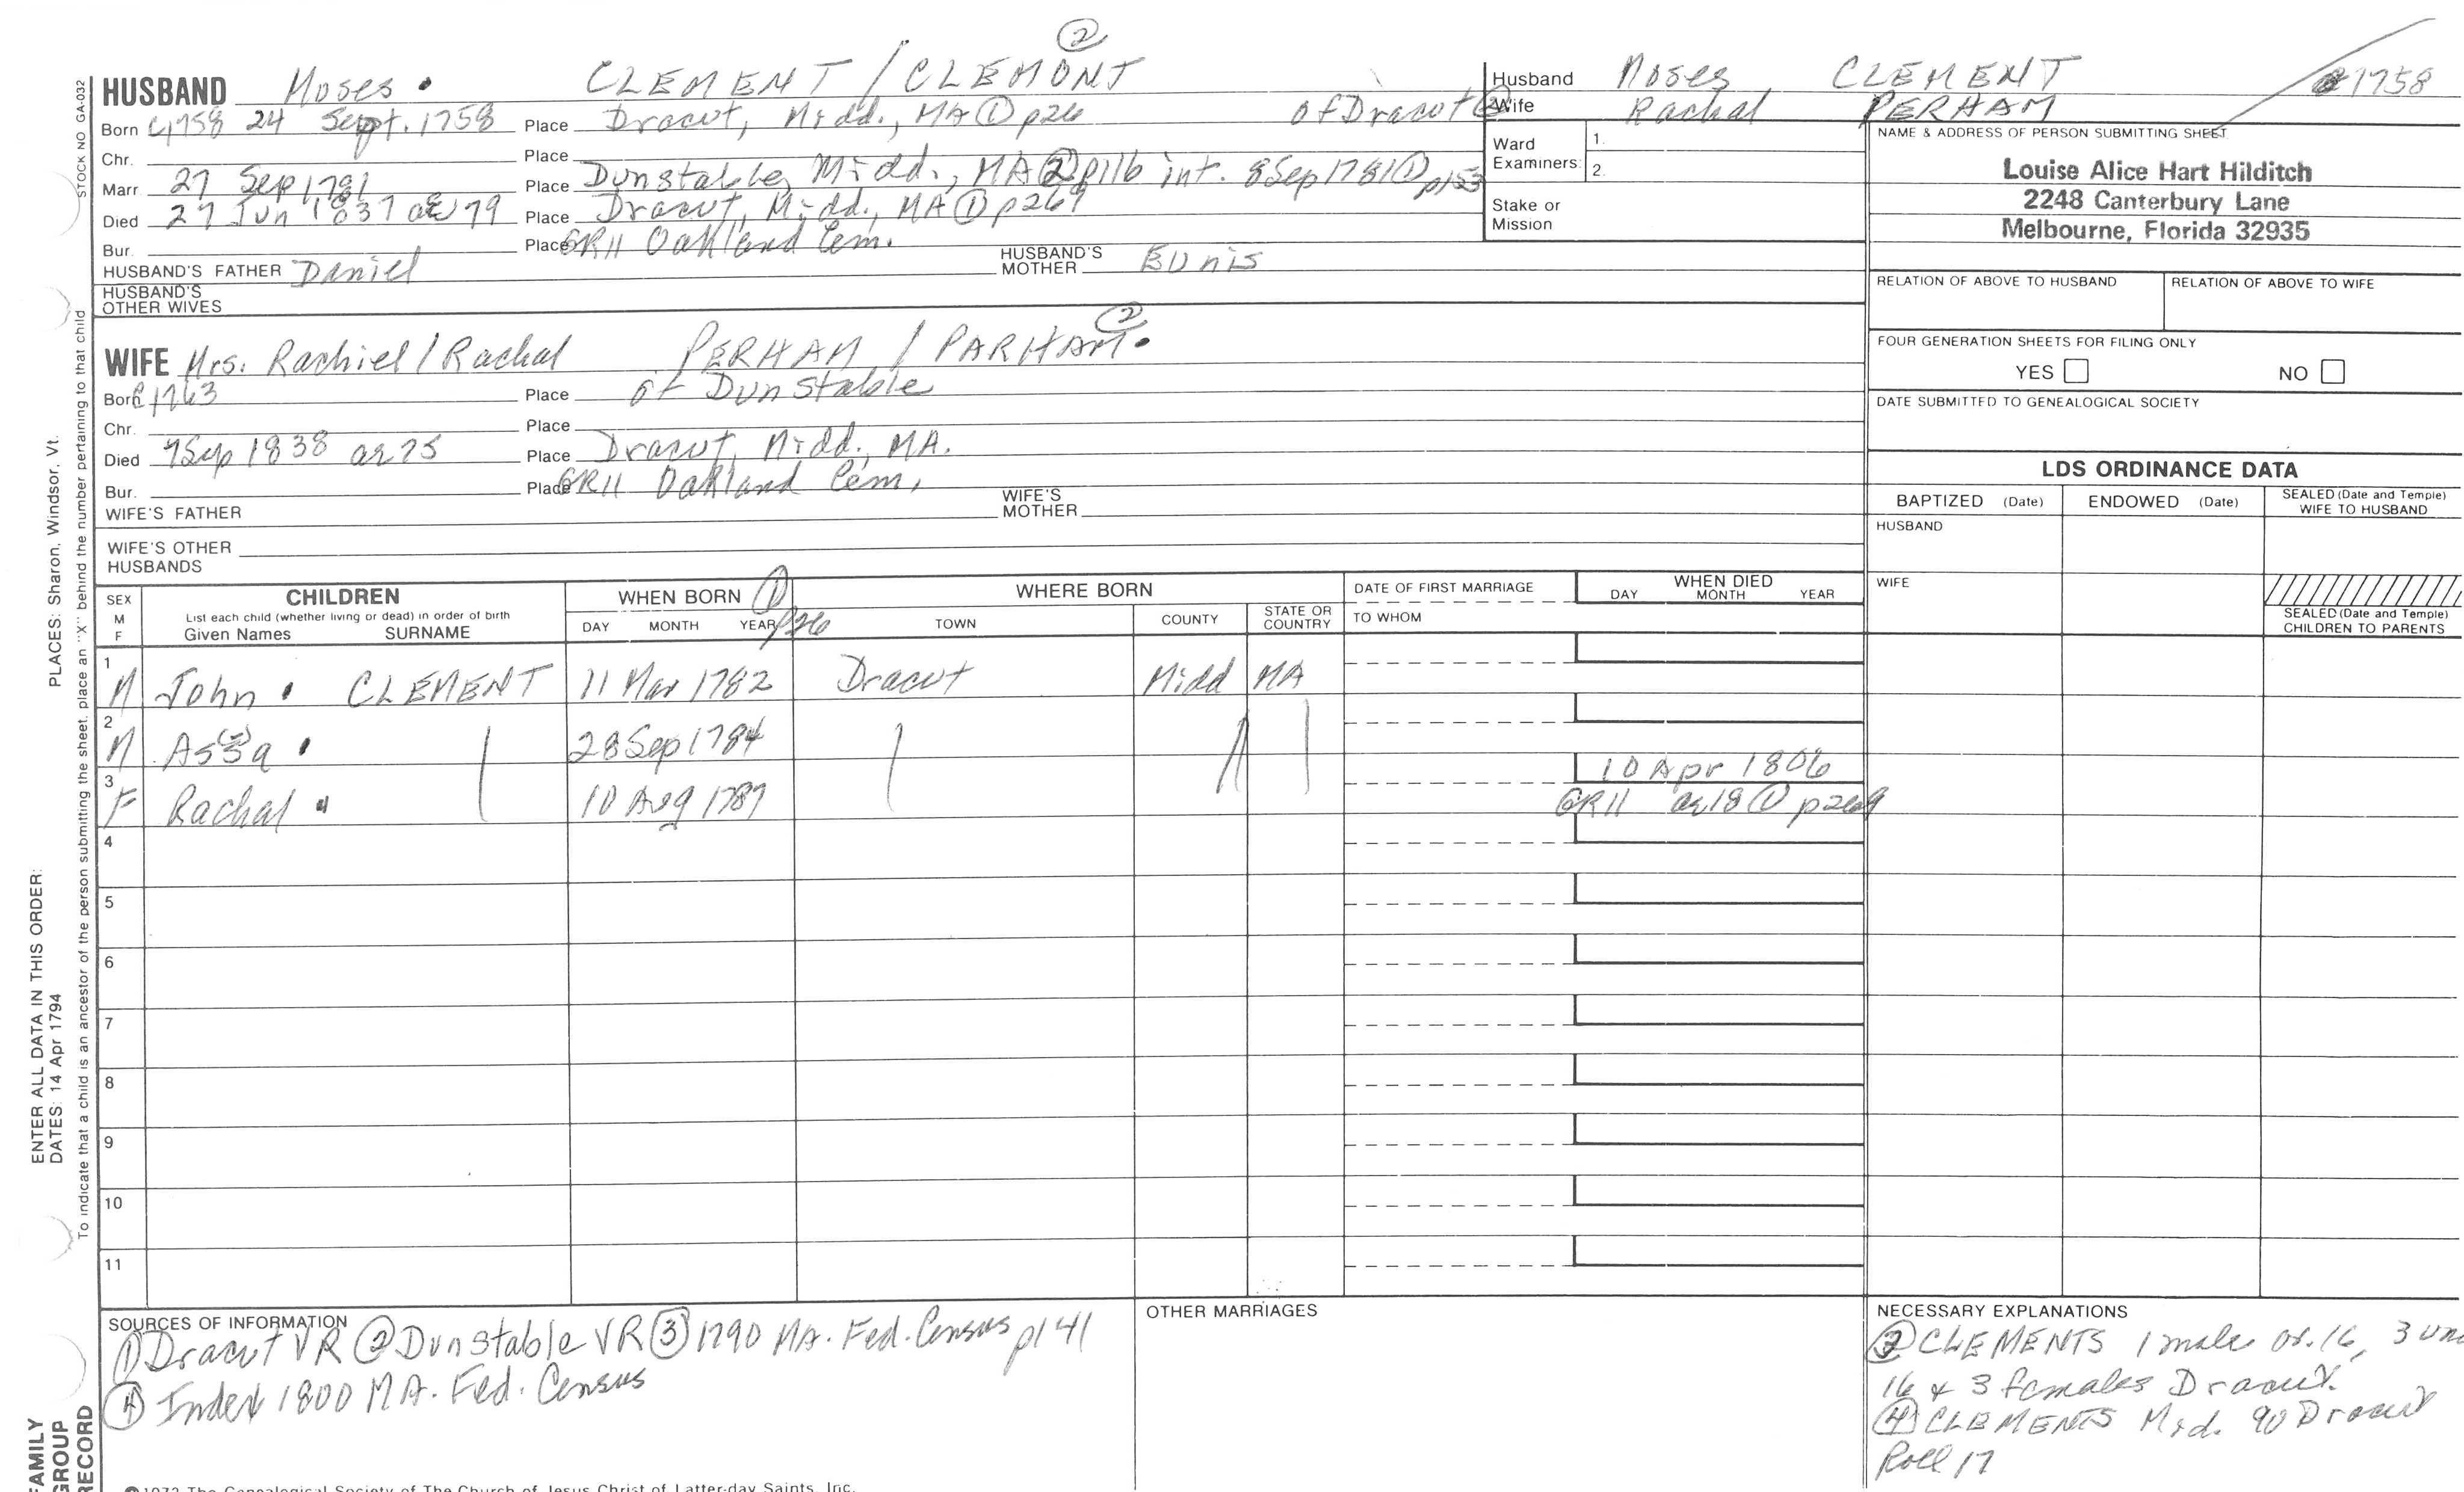 ②
HUSBAND Moses. CLEMENT / CLEMONT
Born c1758 24 Sept. 1758 Place Dracut, Midd., MA ① p26 of Dracut ②
Chr. Place
Marr 27 Sep 1781 Place Dunstable, Midd., MA ② p116 int. 8 Sep 1781 ① p153
Died 27 Jun 1837 ae 79 Place Dracut, Midd., MA ① p269
Bur. Place GR11 Oakland Cem.
HUSBAND'S FATHER Daniel HUSBAND'S MOTHER EUnis
HUSBAND'S OTHER WIVES
②
WIFE Mrs. Rachiel / Rachal PERHAM / PARHAM.
Born c1763 Place of Dunstable
Chr. Place
Died 7 Sep 1838 ae 75 Place Dracut, Midd., MA.
Bur. Place GR11 Oakland Cem.
WIFE'S FATHER WIFE'S MOTHER
WIFE'S OTHER HUSBANDS
Husband Moses CLEMENT 1758
Wife Rachal PERHAM
Ward Examiners: 1.
2.
Stake or Mission
NAME & ADDRESS OF PERSON SUBMITTING SHEET
Louise Alice Hart Hilditch
2248 Canterbury Lane
Melbourne, Florida 32935
RELATION OF ABOVE TO HUSBAND RELATION OF ABOVE TO WIFE
FOUR GENERATION SHEETS FOR FILING ONLY
YES NO
DATE SUBMITTED TO GENEALOGICAL SOCIETY
LDS ORDINANCE DATA
BAPTIZED (Date) ENDOWED (Date) SEALED (Date and Temple) WIFE TO HUSBAND
HUSBAND
WIFE
SEALED (Date and Temple) CHILDREN TO PARENTS
SEX M F
CHILDREN
List each child (whether living or dead) in order of birth
Given Names SURNAME
WHEN BORN ① p26
DAY MONTH YEAR
WHERE BORN
TOWN COUNTY STATE OR COUNTRY
DATE OF FIRST MARRIAGE
TO WHOM
WHEN DIED
DAY MONTH YEAR
1 M John. CLEMENT 11 Mar 1782 Dracut Midd MA
2 M Assa. 28 Sep 1784
3 F Rachal. 10 Aug 1787 10 Apr 1806
GR11 ae 18 ① p269
4
5
6
7
8
9
10
11
SOURCES OF INFORMATION
① Dracut VR ② Dunstable VR ③ 1790 MA. Fed. Census p141
④ Index 1800 MA. Fed. Census
OTHER MARRIAGES
NECESSARY EXPLANATIONS
③ CLEMENTS 1 male ov. 16, 3 un
16 & 3 females Dracut.
④ CLEMENTS Mid. 90 Dracut
Roll 17
STOCK NO GA-032
ENTER ALL DATA IN THIS ORDER:
DATES: 14 Apr 1794 PLACES: Sharon, Windsor, Vt.
To indicate that a child is an ancestor of the person submitting the sheet, place an "X" behind the number pertaining to that child
FAMILY
GROUP
RECORD
©1972 The Genealogical Society of The Church of Jesus Christ of Latter-day Saints, Inc.